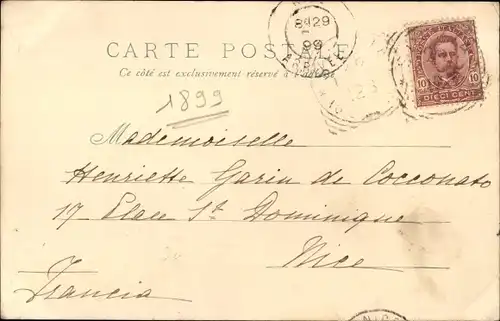 CARTE POSTALE
Ce côté est exclusivement réservé à l'adresse
1899
10 10
DIECI CENT
Mademoiselle
Henriette Garin de Cocconato
17 Place St Dominique
Nice
Francia